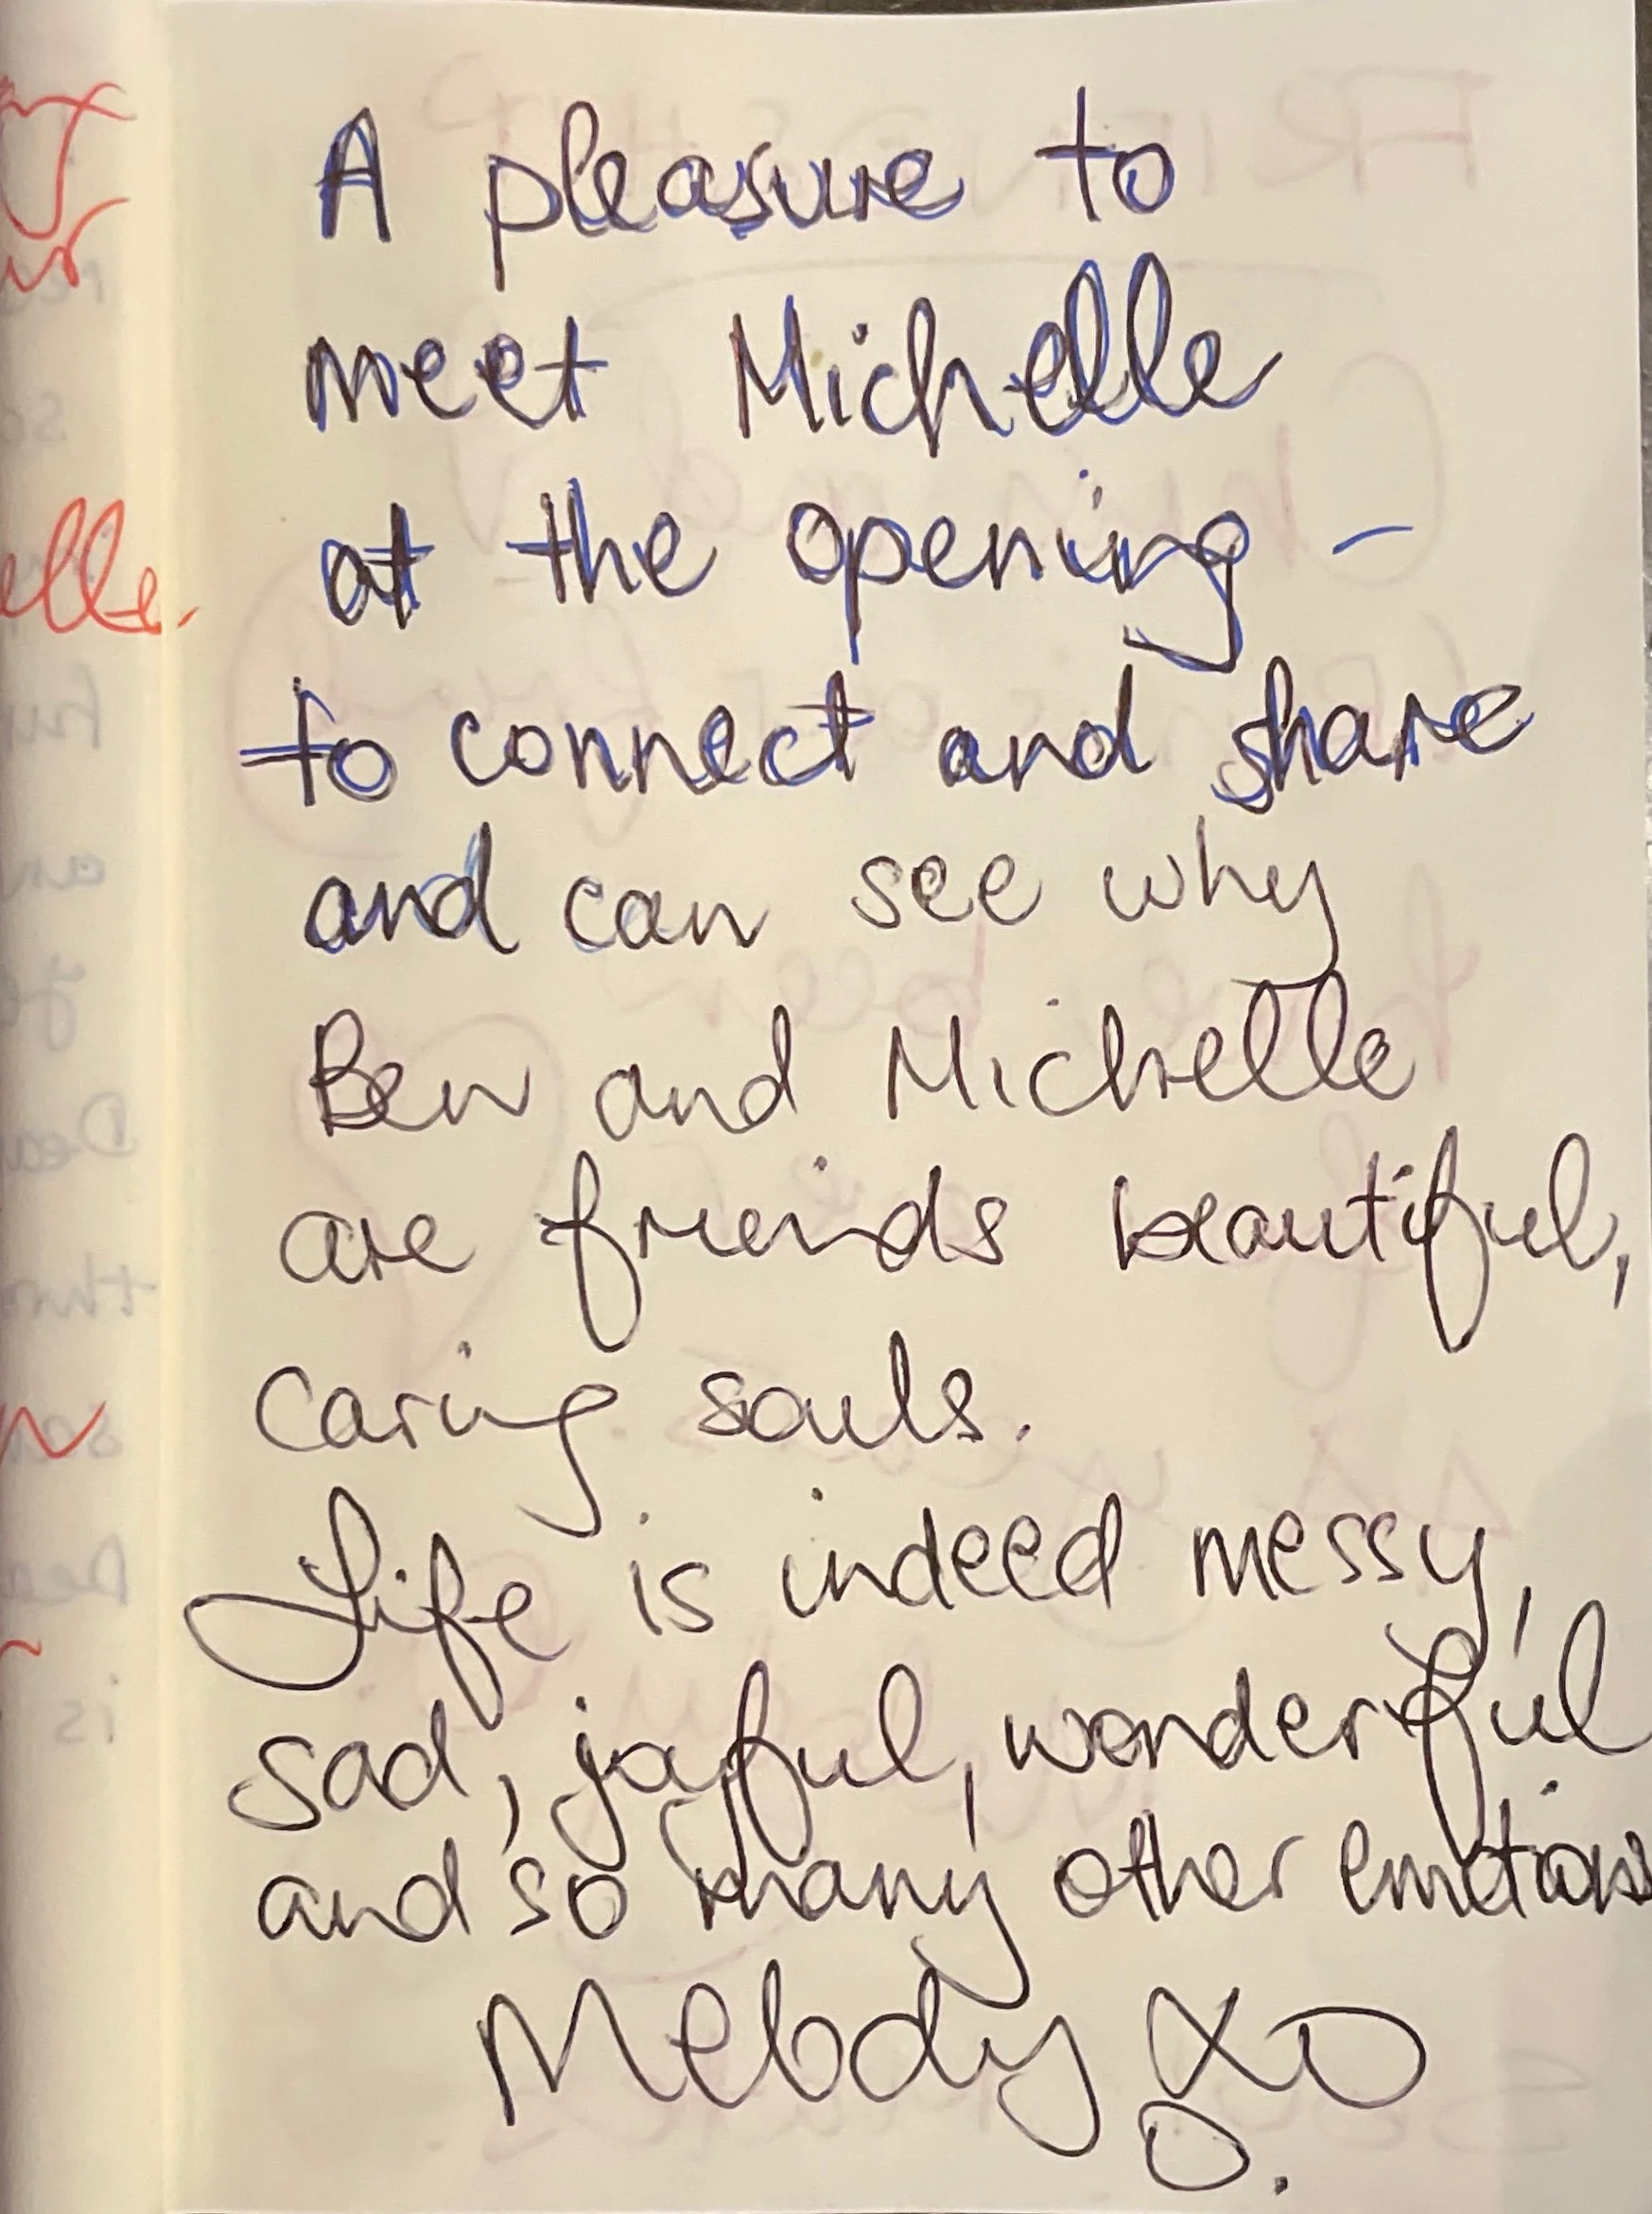 A pleasure to
meet Michelle
at the opening -
to connect and share
and can see why
Ben and Michelle
are friends beautiful,
caring souls.
Life is indeed messy,
sad, joyful, wonderful
and so many other emotions
Melody XO
O.
elle.